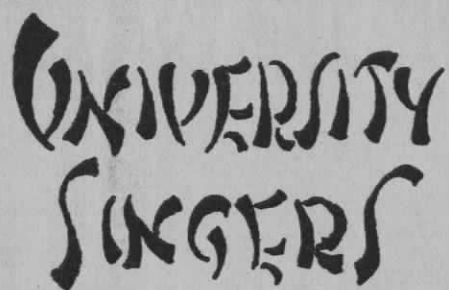 UNIVERSITY
SINGERS